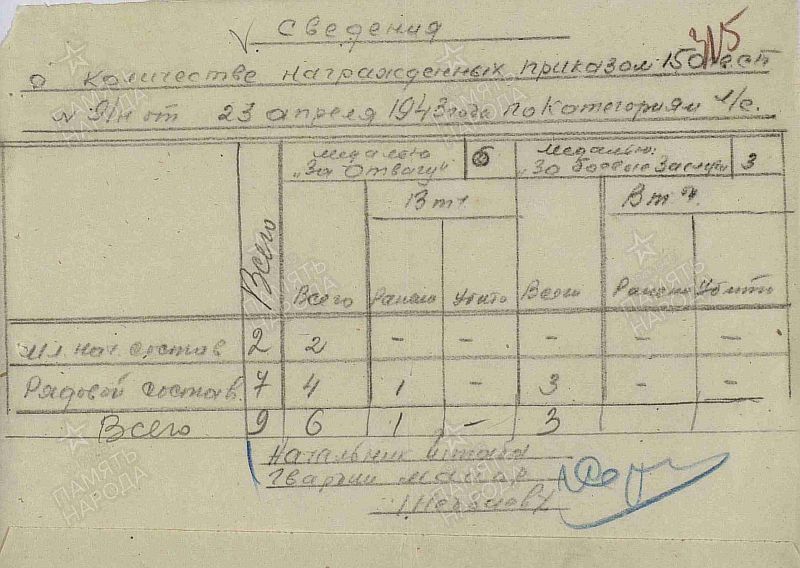 Сведения
315
о количестве награжденных приказом 150
N 9/н от 23 апреля 1943 года по категориям л/с.
Всего
медалью „За Отвагу“ 6
медалью: „За боевые Заслуги 3
В т ч
В т ч.
Всего Ранено Убито Всего Ранено Убито
Мл. нач. состав 2 2 - - - - -
Рядовой состав. 7 4 1 - 3 - -
Всего 9 6 1 - 3
Начальник штаба
Гвардии майор
ПАМЯТЬ НАРОДА